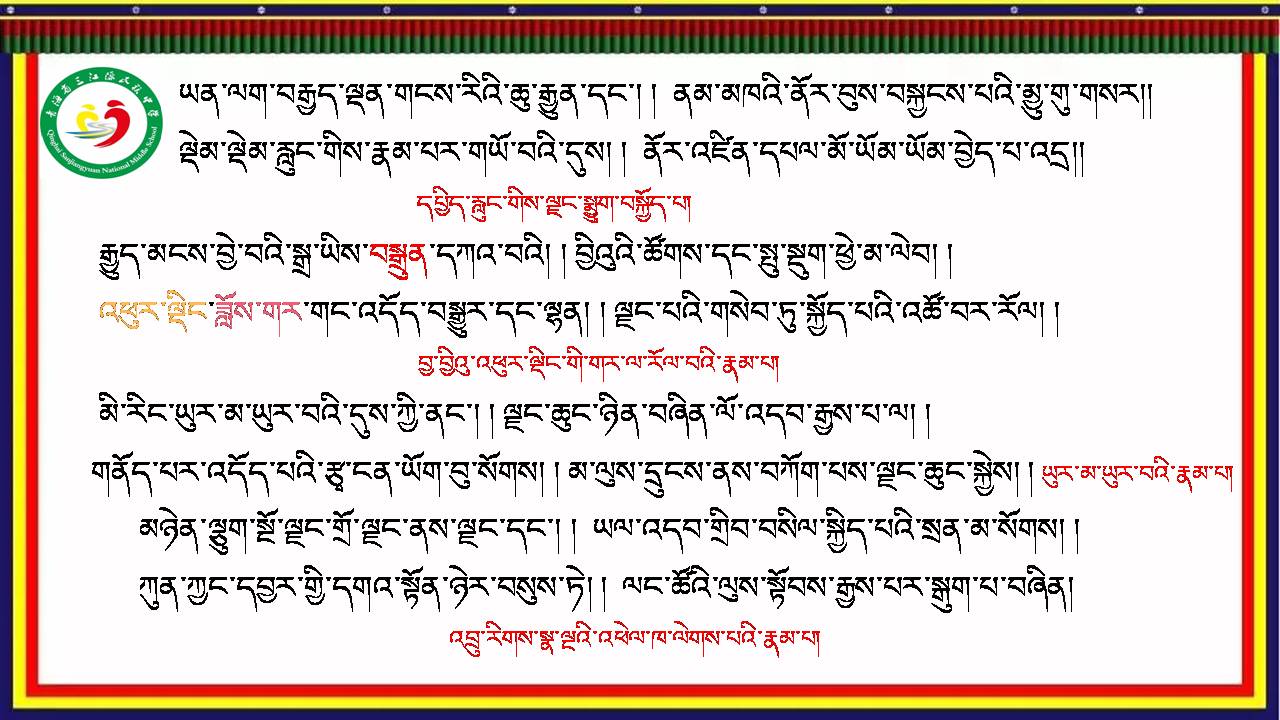 青海省三江源民族中学
Qinghai Sanjiangyuan National Middle School
ཡན་ལག་བརྒྱད་ལྡན་གངས་རིའི་ཆུ་རྒྱུན་དང་། །  ནམ་མཁའི་ནོར་བུས་བསྐྱངས་པའི་མྱུ་གུ་གསར།།
ལྡེམ་ལྡེམ་རླུང་གིས་རྣམ་པར་གཡོ་བའི་དུས། །  ནོར་འཛིན་དཔལ་མོ་ཡོམ་ཡོམ་བྱེད་པ་འདྲ།།
དཔྱིད་རླུང་གིས་ལྗང་སྨྱུག་བསྐྱོད་པ།
རྒྱུད་མངས་བྱེ་བའི་སྒྲ་ཡིས་བསྒྲུན་དཀའ་བའི། ། བྱིའུའི་ཚོགས་དང་སྤུ་སྡུག་ཕྱེ་མ་ལེབ། །
འཕུར་ལྡིང་ཟློས་གར་གང་འདོད་བསྒྱུར་དང་ལྷན། ། ལྗང་པའི་གསེབ་ཏུ་སྐྱོད་པའི་འཚོ་བར་རོལ། །
བྱ་བྱིའུ་འཕུར་ལྡིང་གི་གར་ལ་རོལ་བའི་རྣམ་པ།
མི་རིང་ཡུར་མ་ཡུར་བའི་དུས་ཀྱི་ནང་། ། ལྗང་ཆུང་ཉིན་བཞིན་ལོ་འདབ་རྒྱས་པ་ལ། །
གནོད་པར་འདོད་པའི་རྩྭ་ངན་ཡོག་བུ་སོགས། ། མ་ལུས་དྲུངས་ནས་བཀོག་པས་ལྗང་ཆུང་སྐྱེས། ། ཡུར་མ་ཡུར་བའི་རྣམ་པ།
མཉེན་ལྕུག་སྔོ་ལྗང་གྲོ་ལྗང་ནས་ལྗང་དང་། །  ཡལ་འདབ་གྲིབ་བསིལ་སྐྱིད་པའི་སྲན་མ་སོགས། །
ཀུན་ཀྱང་དབྱར་གྱི་དགའ་སྟོན་ཉེར་བསུས་ཏེ། །  ལང་ཚོའི་ལུས་སྟོབས་རྒྱས་པར་སྒྲུག་པ་བཞིན།
འབྲུ་རིགས་སྣ་ལྔའི་འཕེལ་ཁ་ལེགས་པའི་རྣམ་པ།